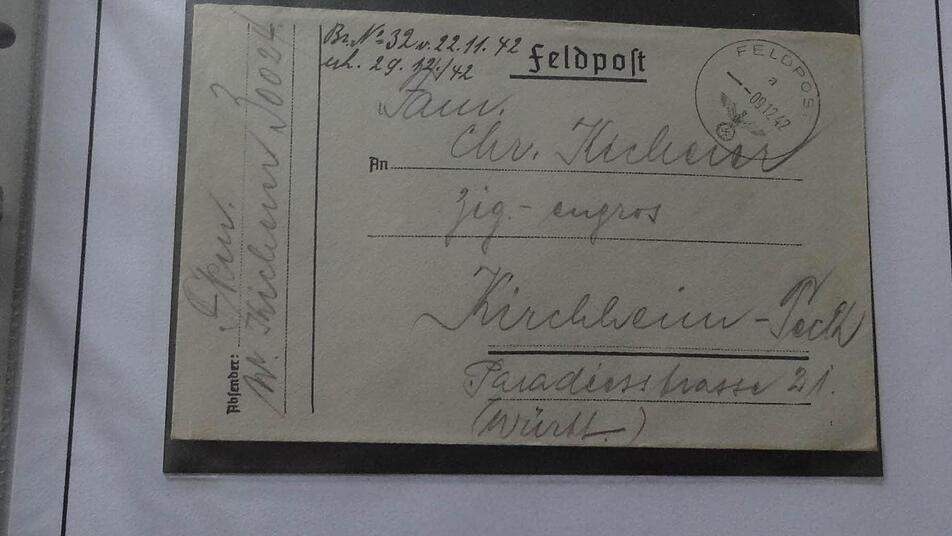 Br. Nº 32 v. 22.11.42
erh. 29.12./42
Feldpost
FELDPOST
a
-09.12.42
Fam.
An Chr.
Zig.-engros
Kirchheim-Teck
Paradiesstrasse 21.
(Württ.)
Absender:
W.